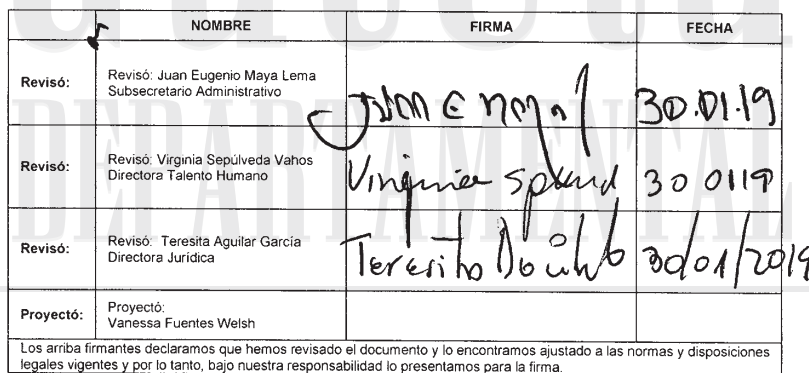 NOMBRE FIRMA FECHA
Revisó: Revisó: Juan Eugenio Maya Lema
Subsecretario Administrativo
Juan E Maya 30.01.19
Revisó: Revisó: Virginia Sepúlveda Vahos
Directora Talento Humano
Virginia 30 01 19
Revisó: Revisó: Teresita Aguilar García
Directora Jurídica
Teresita 30/01/2019
Proyectó: Proyectó:
Vanessa Fuentes Welsh
Los arriba firmantes declaramos que hemos revisado el documento y lo encontramos ajustado a las normas y disposiciones
legales vigentes y por lo tanto, bajo nuestra responsabilidad lo presentamos para la firma.
DEPARTAMENTAL